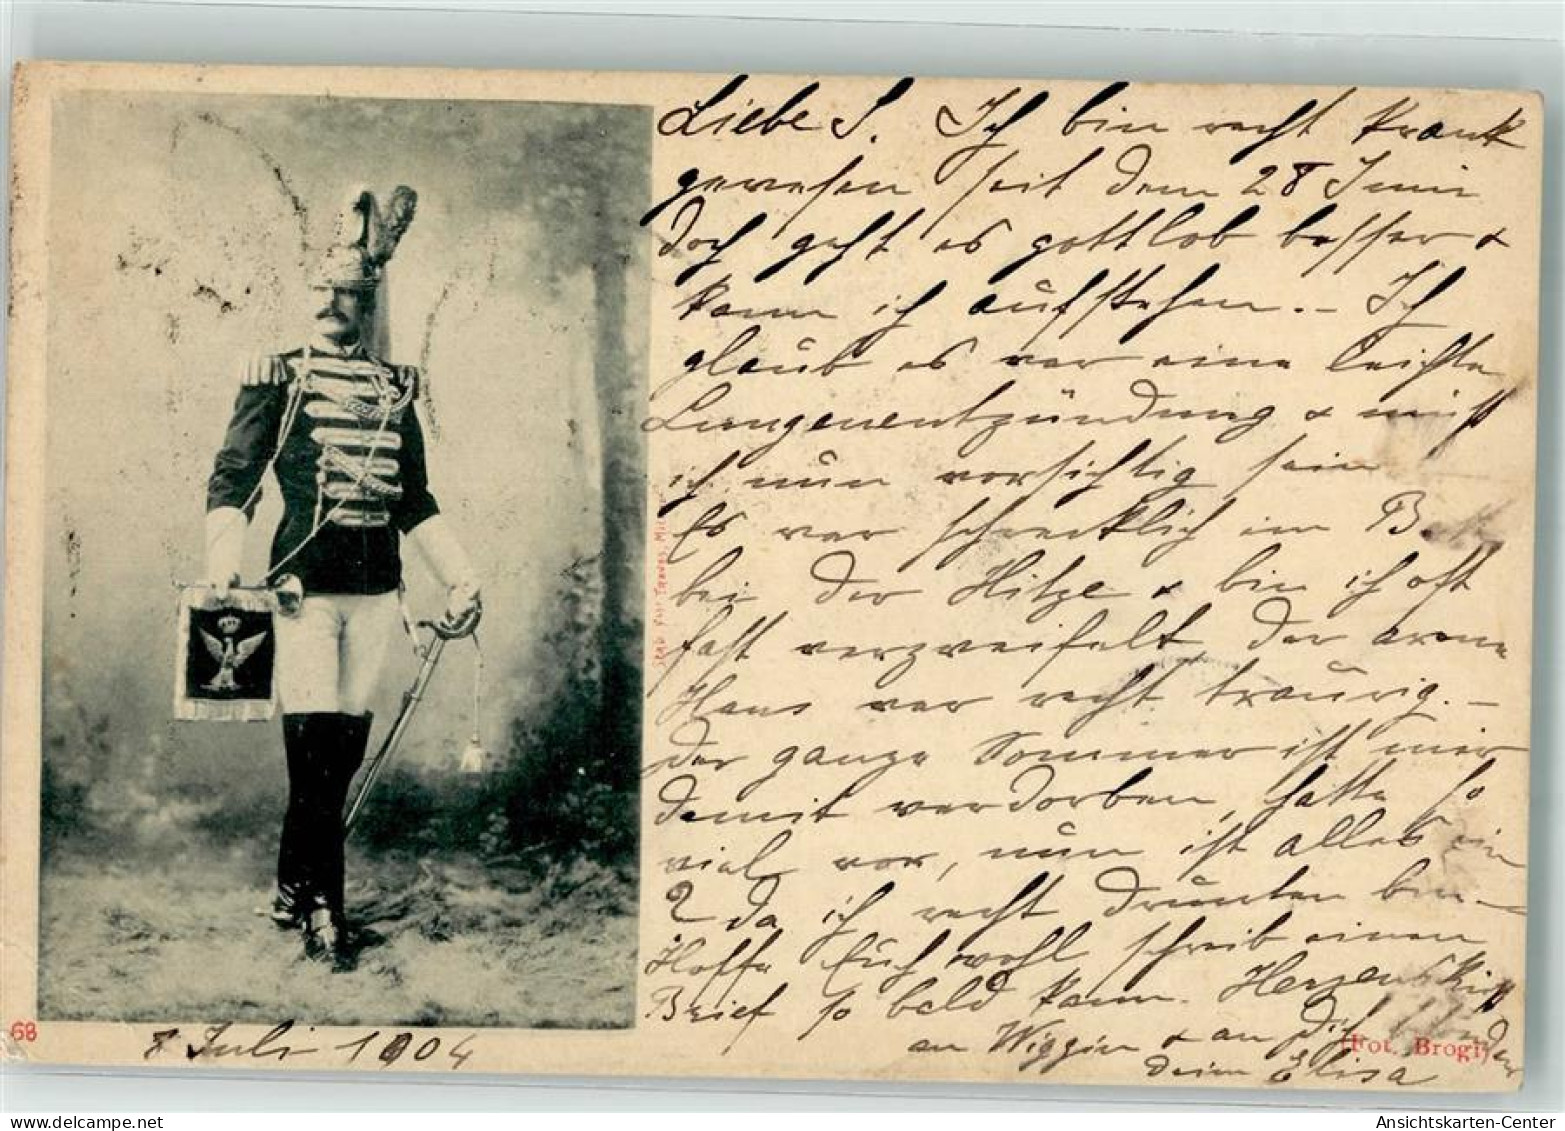 Liebe S. Ich bin recht krank
gewesen seit dem 28 Juni
doch geht es gottlob besser &
kann ich aufstehen. – Ich
glaub es war eine leichte
Lungenentzündung & muß
ich nun vorsichtig sein
Es war schrecklich im
bei der Hitze & bin ich oft
fast verzweifelt, der arme
Hans war recht traurig. –
Der ganze Sommer ist mir
damit verdorben, hatte so
viel vor, nun ist alles ein
? da ich recht drunten bin. –
Hoffe Euch wohl schreib einen
Brief so bald kann. Herzenskuß
an Wiggin & an Dich
deine Elisa
8 Juli 1904
68
(Fot. Brogi)
Ansichtskarten-Center